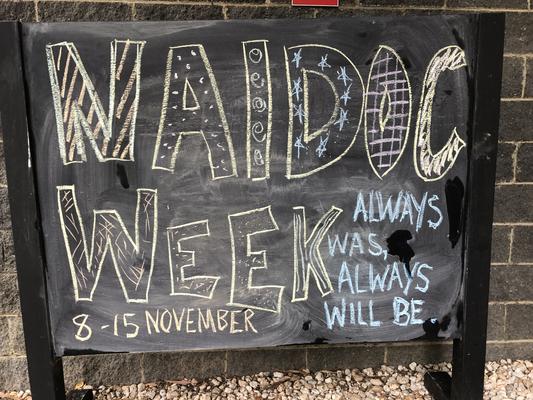 NAIDOC
WEEK
ALWAYS
WAS,
ALWAYS
WILL BE.
8-15 NOVEMBER